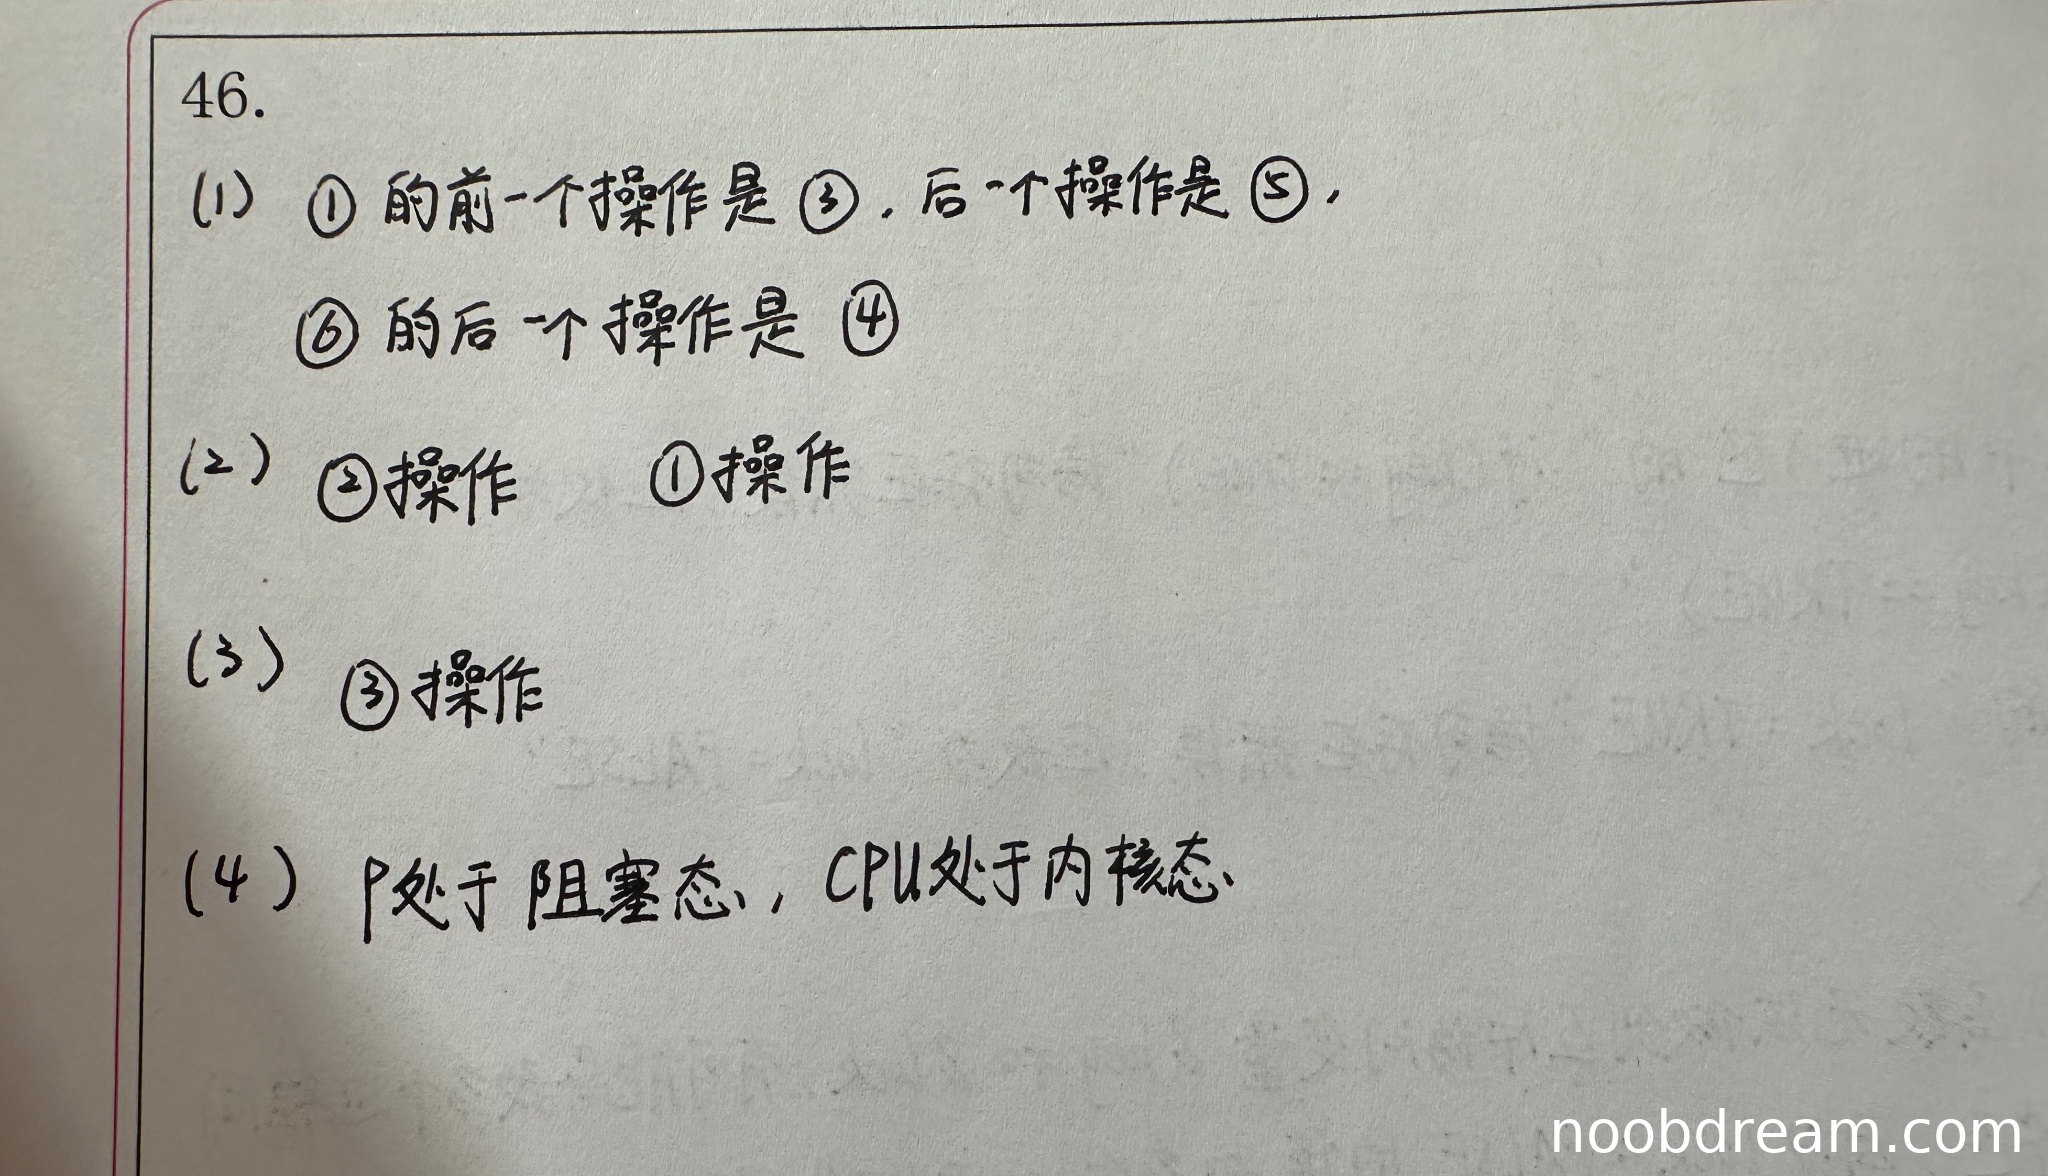 46.
(1) ① 的前一个操作是 ③, 后一个操作是 ⑤,
⑥ 的后一个操作是 ④
(2) ②操作 ①操作
(3) ③操作
(4) P处于阻塞态, CPU处于内核态
noobdream.com